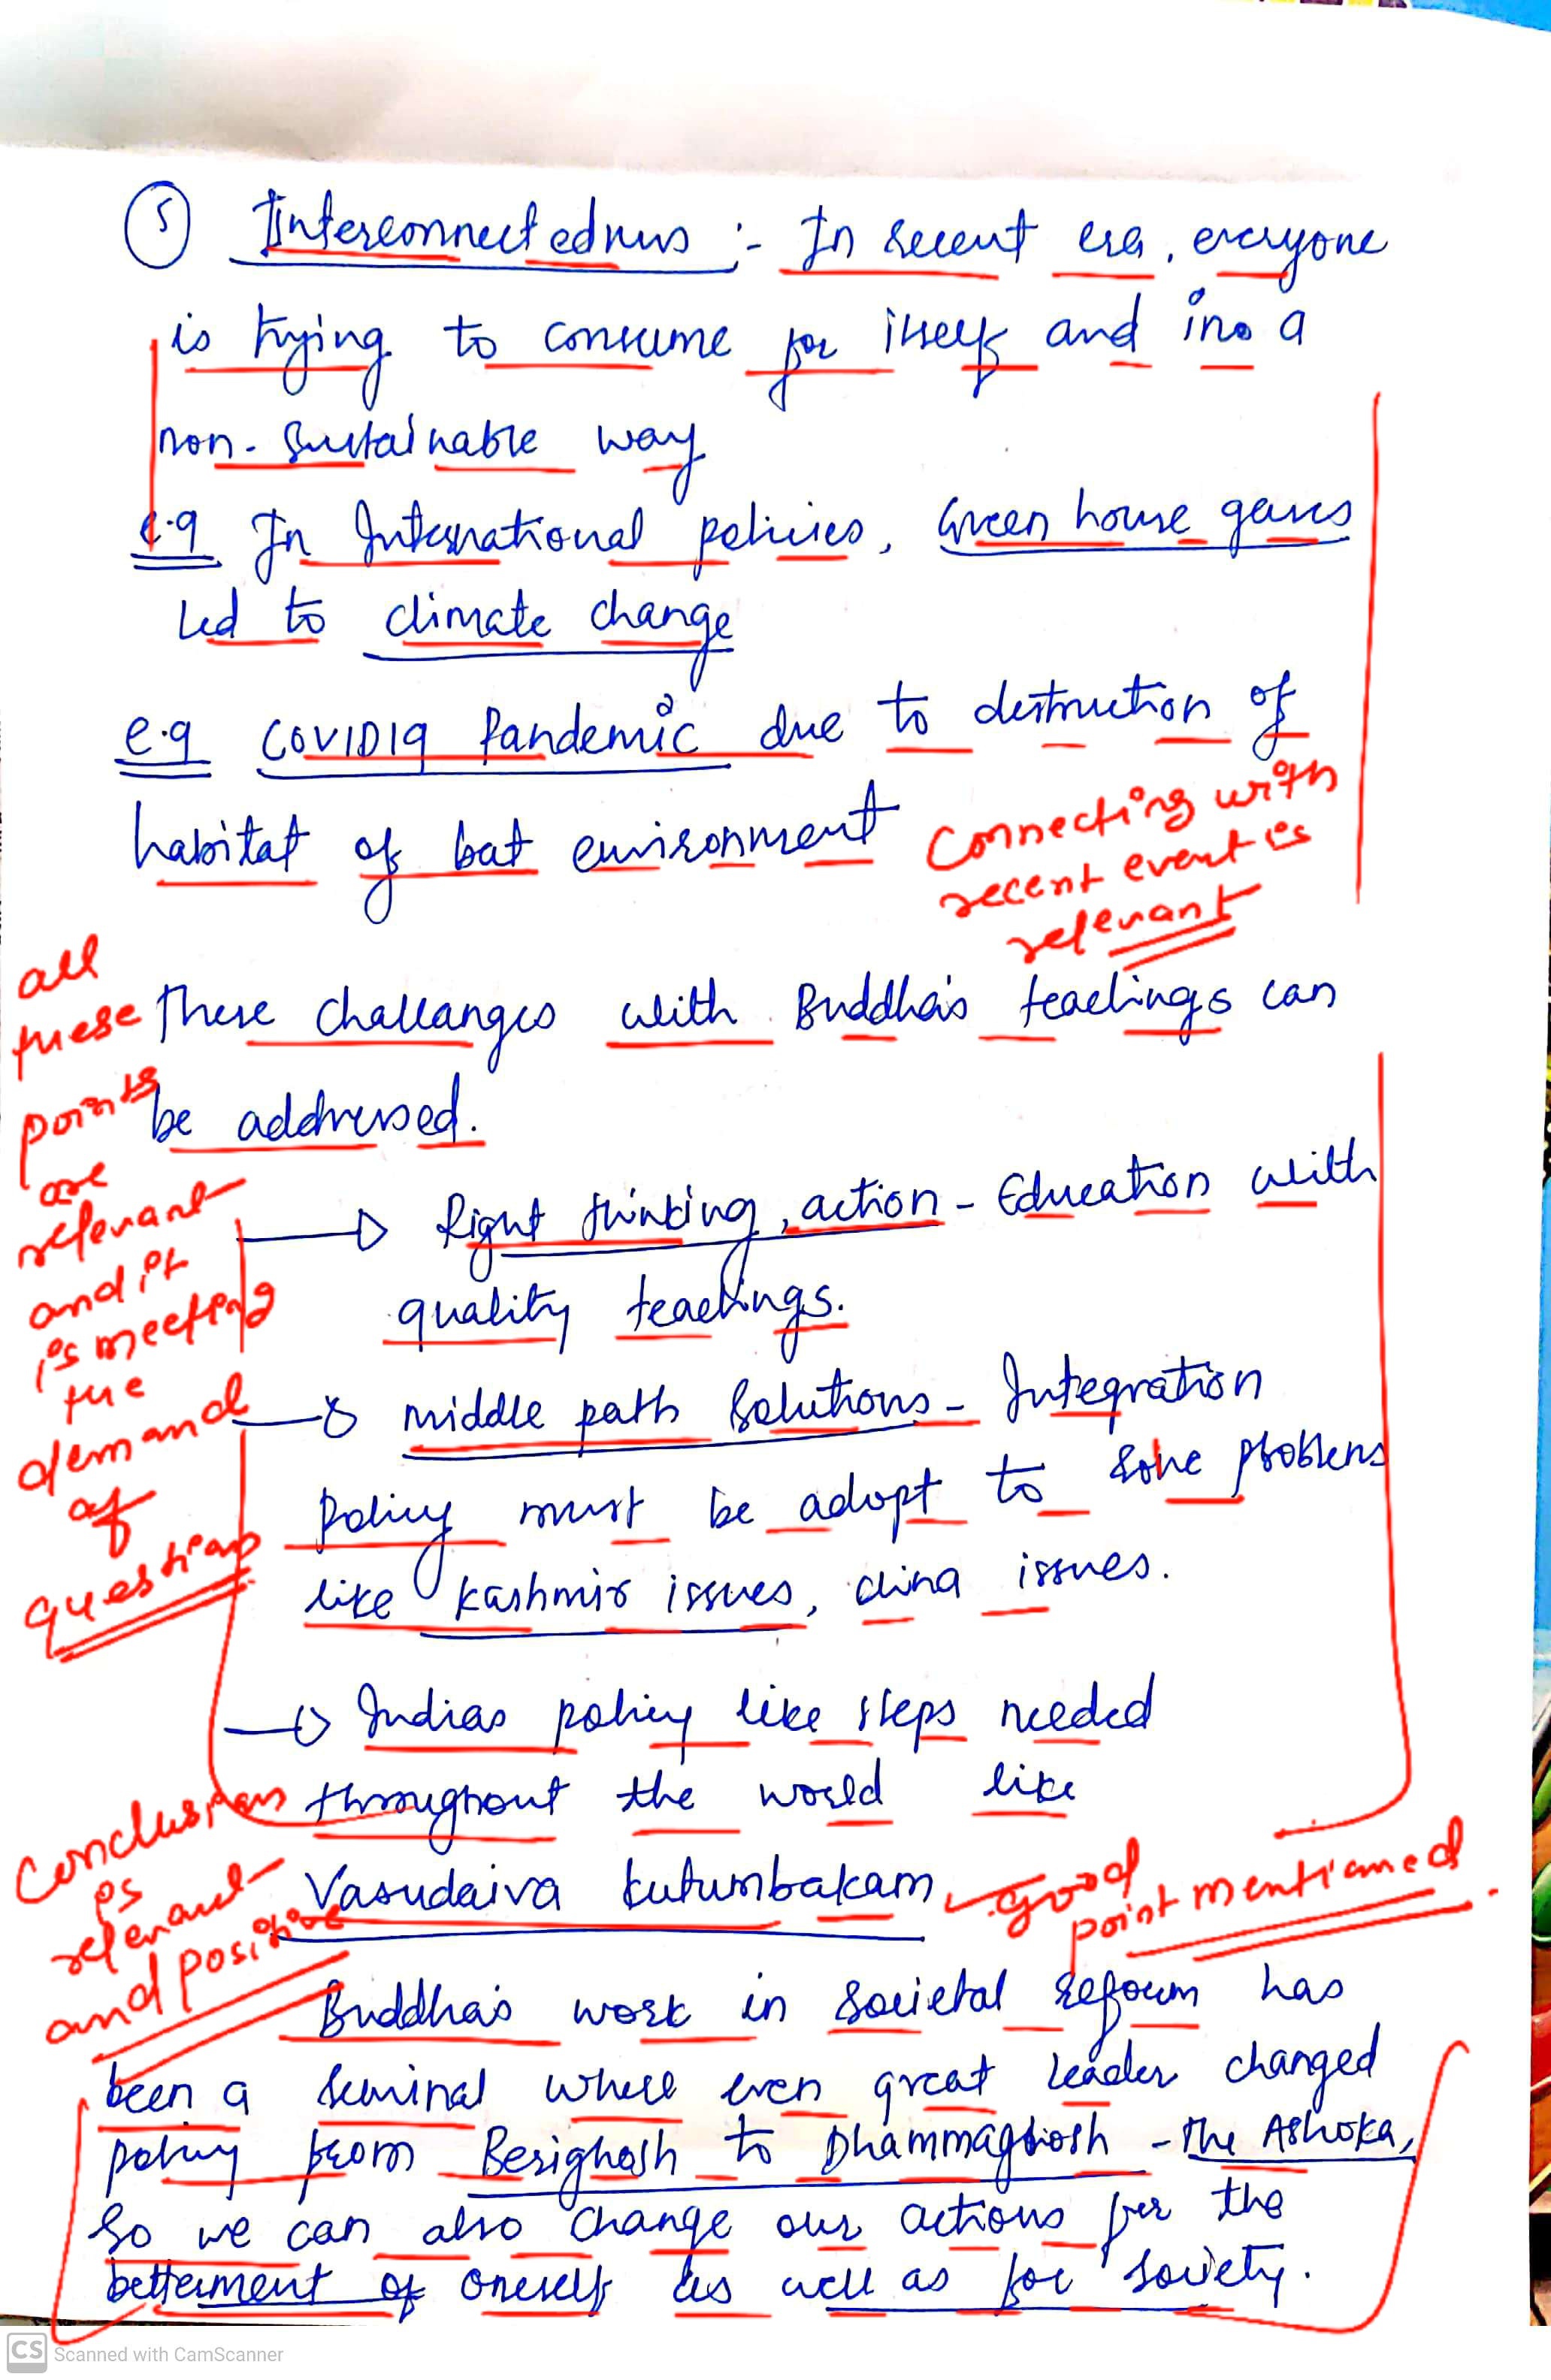 5 Interconnectedness :- In recent era, everyone
is trying to consume for itself and in a
non-sustainable way
e.g In International policies, Green house gases
led to climate change
e.g COVID19 Pandemic due to destruction of
habitat of bat environment
Connecting with
recent event is
relevant
These challanges with Buddha's teachings can
be addressed.
all
these
points
are
relevant
and it
is meeting
the
demand
of
question
→ Right thinking, action - Education with
quality teachings.
→ middle path solutions - Integration
policy must be adopt to solve problems
like Kashmir issues, china issues.
→ Indias policy like steps needed
throughout the world like
Vasudaiva kutumbakam
good
point mentioned.
Conclusion
is
relevant
and positive
Buddha's work in societal reform has
been a seminal where even great leader changed
policy from Berighosh to Dhammaghosh - The Ashoka,
So we can also change our actions for the
betterment of oneself as well as for society.
CS Scanned with CamScanner